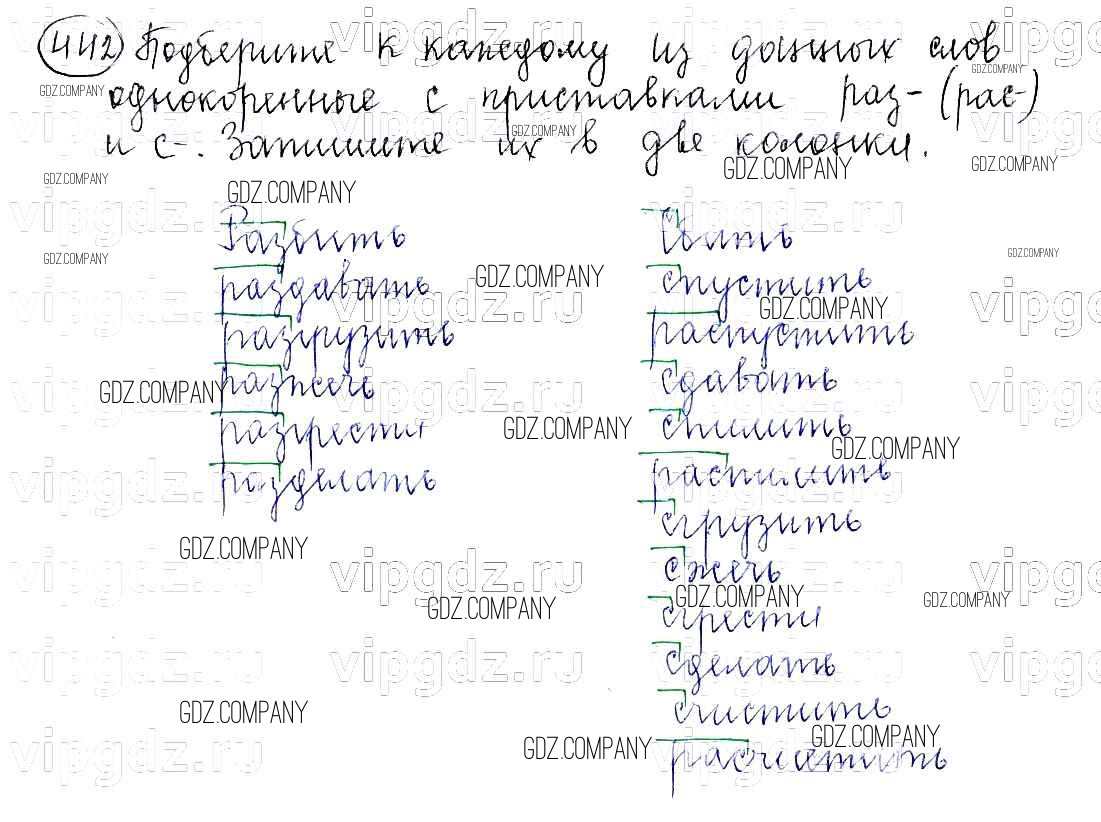 442 Подберите к каждому из данных слов
однокоренные с приставками раз- (рас-)
и с-. Запишите их в две колонки.
Разбить
раздавать
разгрузить
разжечь
разгрести
разделать
Сбить
спустить
распустить
сдавать
спилить
распилить
сгрузить
сжечь
сгрести
сделать
счистить
расчистить
GDZ.COMPANY
vipgdz.ru